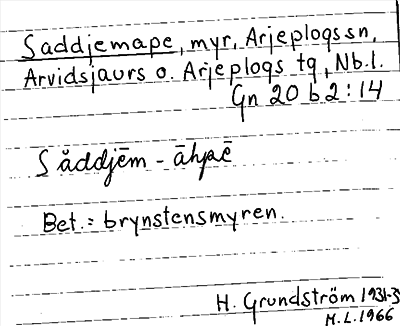 Saddjemape, myr, Arjeplogs sn,
Arvidsjaurs o. Arjeplogs tg, Nb.l.
Gn 20 b 2:14
Săddjēm - āhpē
Bet.: brynstensmyren.
H. Grundström 1931-3
M.L. 1966